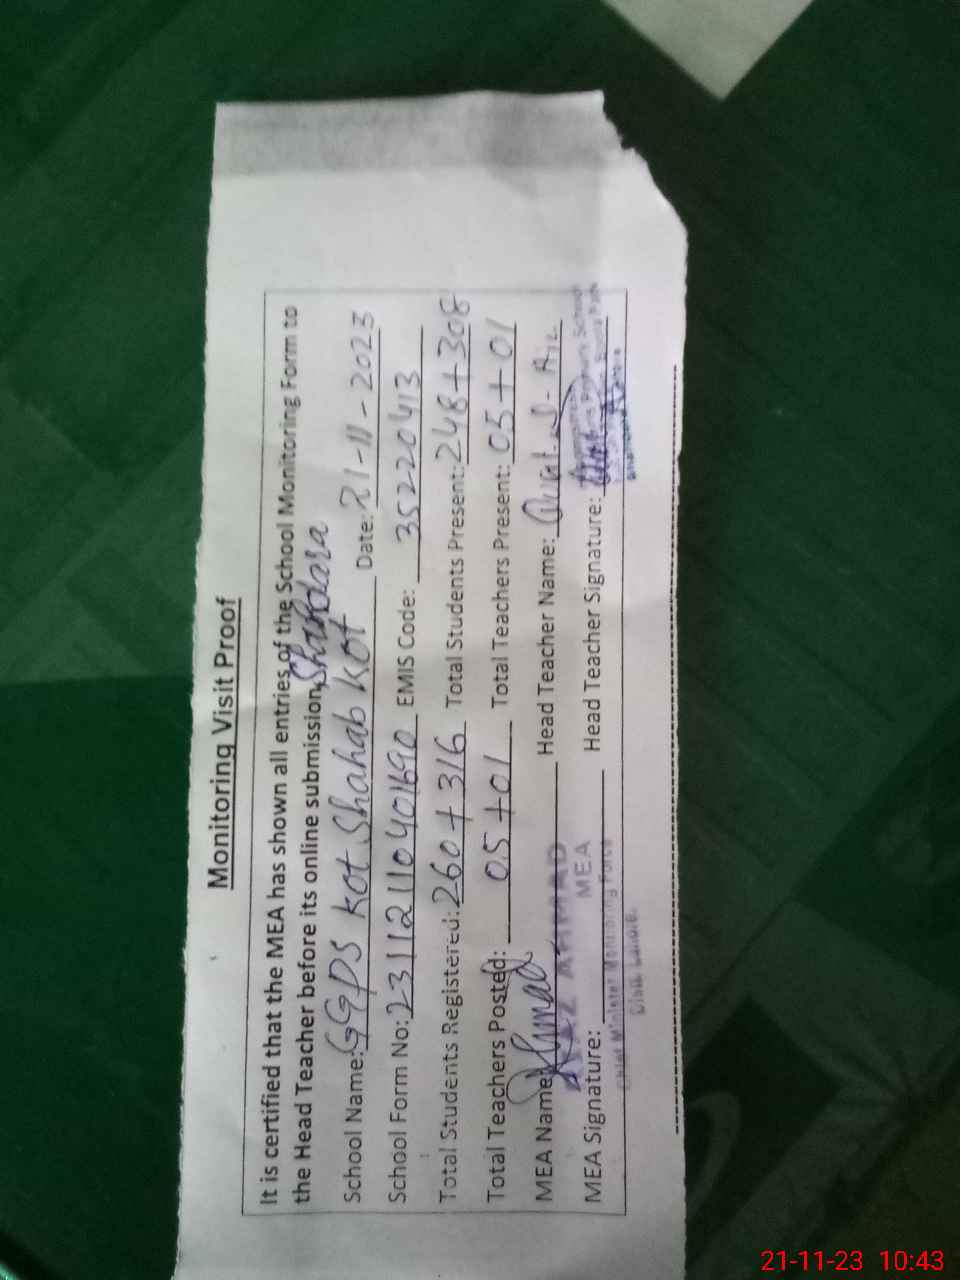 Monitoring Visit Proof
It is certified that the MEA has shown all entries of the School Monitoring Form to
the Head Teacher before its online submission. Shahdara
School Name: GGPS Kot Shahab Kot Date: 21-11-2023
School Form No: 23112110401690 EMIS Code: 35220413
Total Students Registered: 260+316 Total Students Present: 248+308
Total Teachers Posted: 05+01 Total Teachers Present: 05+01
MEA Name: Head Teacher Name:
AHMAD
MEA
MEA Signature: Head Teacher Signature:
Chief Minister Monitoring Force
Distt. Lahore.
21-11-23 10:43